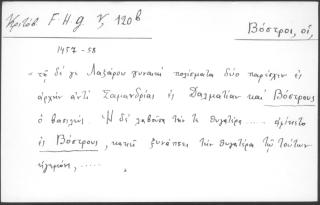 Κριτόβ. F H g V, 120b
Βόστροι, οἱ,
1457-58
"τῇ δέ γε Λαζάρου γυναικὶ πολίσματα δύο παρέσχεν ἐς
ἀρχὴν ἀντὶ Σαμανδρίας ἐς Δαλματίαν καὶ Βόστρους
ὁ βασιλεύς. Ἡ δὲ λαβοῦσα τήν τε θυγατέρα .... ἀφίκετο
ἐς Βόστρους, κἀκεῖ ξυνάπτει τὴν θυγατέρα τῷ τούτων
ἡγεμόνι, .....